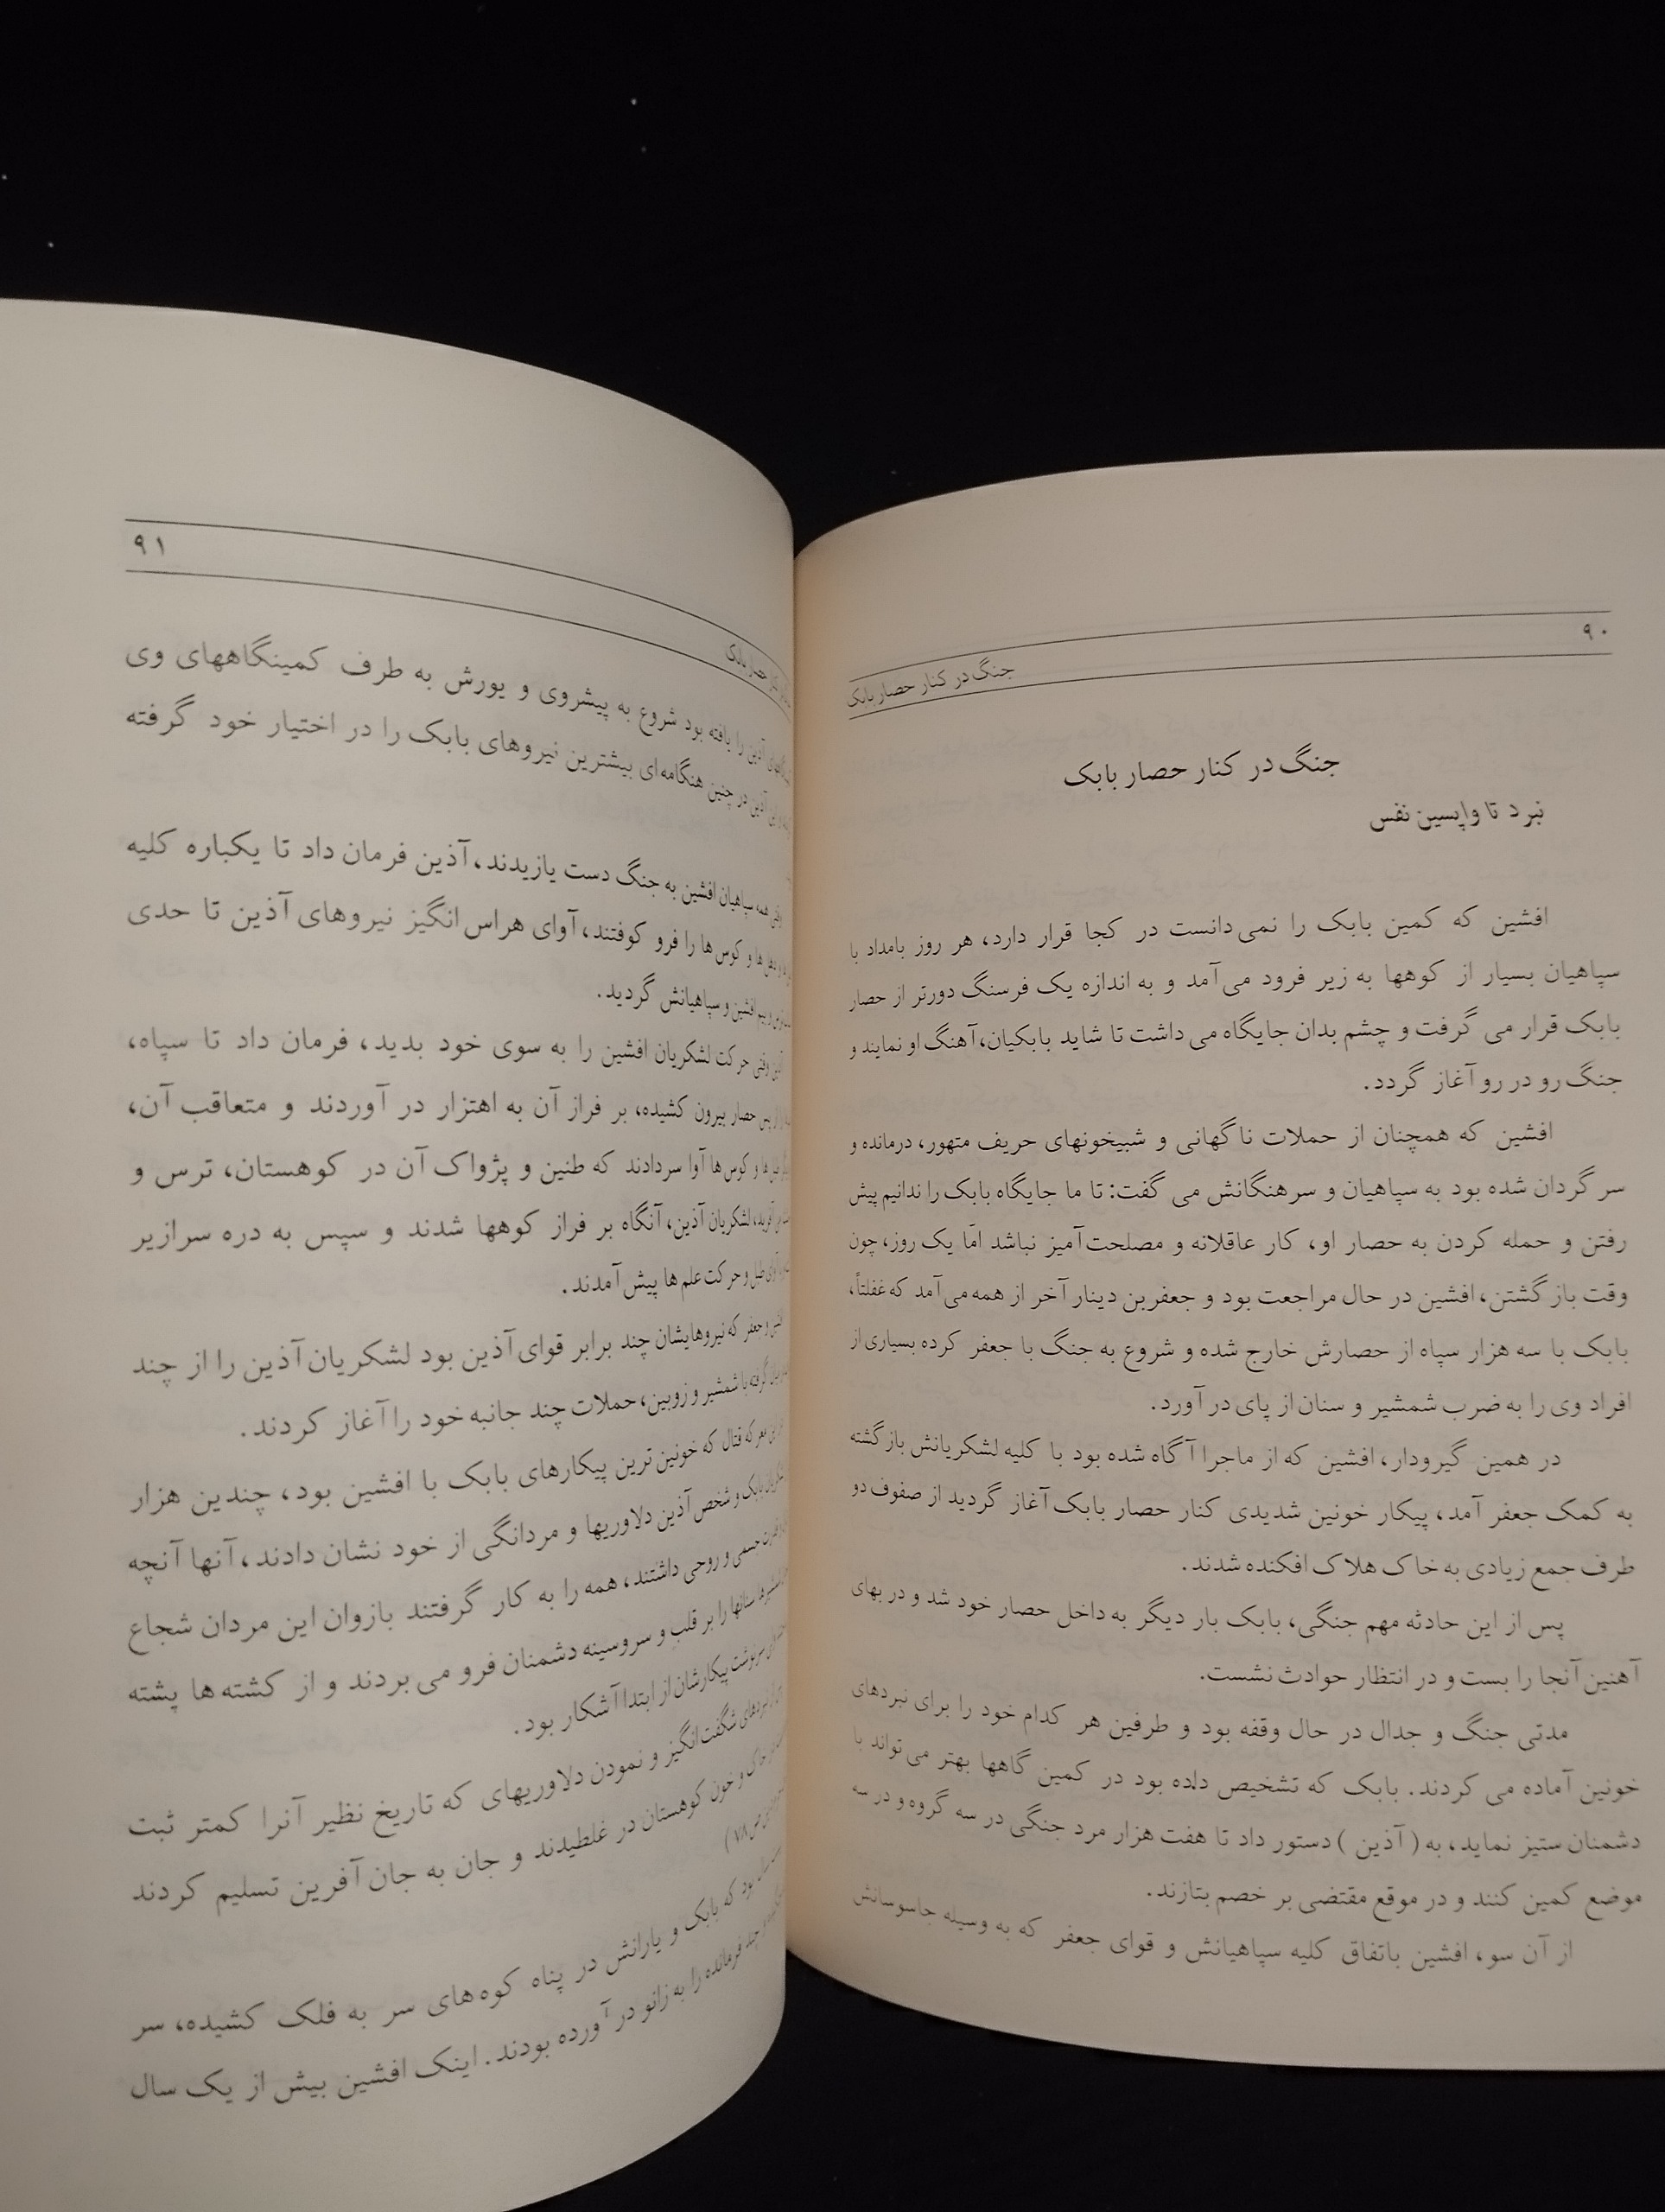 ۹۰
جنگ در کنار حصار بابک
جنگ در کنار حصار بابک
نبرد تا واپسین نفس
افشین که کمین بابک را نمی‌دانست در کجا قرار دارد، هر روز بامداد با
سپاهیان بسیار از کوهها به زیر فرود می‌آمد و به اندازه یک فرسنگ دورتر از حصار
بابک قرار می گرفت و چشم بدان جایگاه می داشت تا شاید بابکیان، آهنگ او نمایند و
جنگ رو در رو آغاز گردد.
افشین که همچنان از حملات ناگهانی و شبیخونهای حریف متهور، درمانده و
سر گردان شده بود به سپاهیان و سرهنگانش می گفت: تا ما جایگاه بابک را ندانیم پیش
رفتن و حمله کردن به حصار او، کار عاقلانه و مصلحت‌آمیز نباشد امّا یک روز، چون
وقت باز گشتن، افشین در حال مراجعت بود و جعفربن دینار آخر از همه می‌آمد که غفلتاً،
بابک با سه هزار سپاه از حصارش خارج شده و شروع به جنگ با جعفر کرده بسیاری از
افراد وی را به ضرب شمشیر و سنان از پای در آورد.
در همین گیرودار، افشین که از ماجرا آگاه شده بود با کلیه لشکریانش بازگشته
به کمک جعفر آمد، پیکار خونین شدیدی کنار حصار بابک آغاز گردید از صفوف دو
طرف جمع زیادی به خاک هلاک افکنده شدند.
پس از این حادثه مهم جنگی، بابک بار دیگر به داخل حصار خود شد و در بهای
آهنین آنجا را بست و در انتظار حوادث نشست.
مدتی جنگ و جدال در حال وقفه بود و طرفین هر کدام خود را برای نبردهای
خونین آماده می کردند. بابک که تشخیص داده بود در کمین گاهها بهتر می‌تواند با
دشمنان ستیز نماید، به ( آذین ) دستور داد تا هفت هزار مرد جنگی در سه گروه و در سه
موضع کمین کنند و در موقع مقتضی بر خصم بتازند.
از آن سو، افشین باتفاق کلیه سپاهیانش و قوای جعفر که به وسیله جاسوسانش
۹۱
حصار بابک
آذین را یافته بود شروع به پیشروی و یورش به طرف کمینگاههای وی
آذین در چنین هنگامه‌ای بیشترین نیروهای بابک را در اختیار خود گرفته
همه سپاهیان افشین به جنگ دست یازیدند، آذین فرمان داد تا یکباره کلیه
و کوس‌ها را فرو کوفتند، آوای هراس‌انگیز نیروهای آذین تا حدی
بیم افشین و سپاهیانش گردید.
وقتی حرکت لشکریان افشین را به سوی خود بدید، فرمان داد تا سپاه،
حصار بیرون کشیده، بر فراز آن به اهتزار در آوردند و متعاقب آن،
و کوس‌ها آوا سردادند که طنین و پژواک آن در کوهستان، ترس و
لشکریان آذین، آنگاه بر فراز کوهها شدند و سپس به دره سرازیر
طبل و حرکت علم‌ها پیش آمدند.
و جعفر که نیروهایشان چند برابر قوای آذین بود لشکریان آذین را از چند
گرفته با شمشیر و زوبین، حملات چند جانبه خود را آغاز کردند.
معرکه قتال که خونین‌ترین پیکارهای بابک با افشین بود، چندین هزار
بابک و شخص آذین دلاوریها و مردانگی از خود نشان دادند، آنها آنچه
قدرت جسمی و روحی داشتند، همه را به کار گرفتند بازوان این مردان شجاع
سنانها را بر قلب و سروسینه دشمنان فرو می‌بردند و از کشته ها پشته
سرنوشت پیکارشان از ابتدا آشکار بود.
نبردهای شگفت‌انگیز و نمودن دلاوریهای که تاریخ نظیر آنرا کمتر ثبت
خاک و خون کوهستان در غلطیدند و جان به جان آفرین تسلیم کردند
ص ۷۸)
بود که بابک و یارانش در پناه کوه‌های سر به فلک کشیده، سر
چند فرمانده را به زانو در آورده بودند. اینک افشین بیش از یک سال